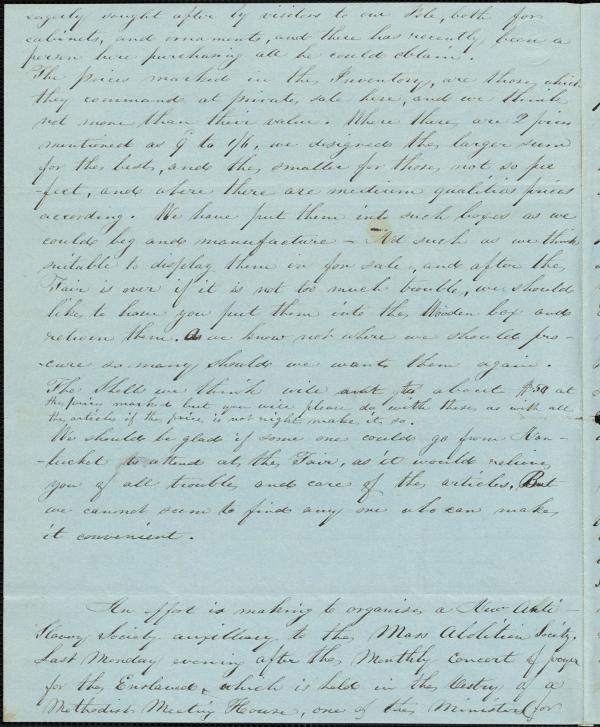 eagerly sought after by visitors to our Isle, both for
cabinets, and ornaments, and there has recently been a
person here purchasing all he could obtain.
The prices marked in the Inventory, are those which
they command at private sale here, and we think
not more than their value. Where there are 2 prices
mentioned as 9 to 1/6, we designed the larger sum
for the best, and the smaller for those not so per
-fect, and where there are medium qualities prices
according. We have put them into such boxes as we
could beg and manufacture - And such as we think
suitable to display them in for sale, and after the
Fair is over if it is not too much trouble, we should
like to have you put them into the Wooden box and
return them. As we know not where we should pro-
-cure so many should we want them again.
The Shells we think will amt to about $50 at
the prices marked but you will please do with these as with all
the articles if the price is not right make it so.
We should be glad if some one could go from Nan-
-tucket to attend at the Fair, as it would relieve
you of all trouble and care of the articles, But
we cannot seem to find any one who can make
it convenient.
An effort is making to organise a New Anti-
Slavery Society auxiliary to the Mass Abolition Society.
Last Monday evening after the Monthly Concert of prayer
for the Enslaved, which is held in the Vestry of a
Methodist Meeting House, one of the Ministers for